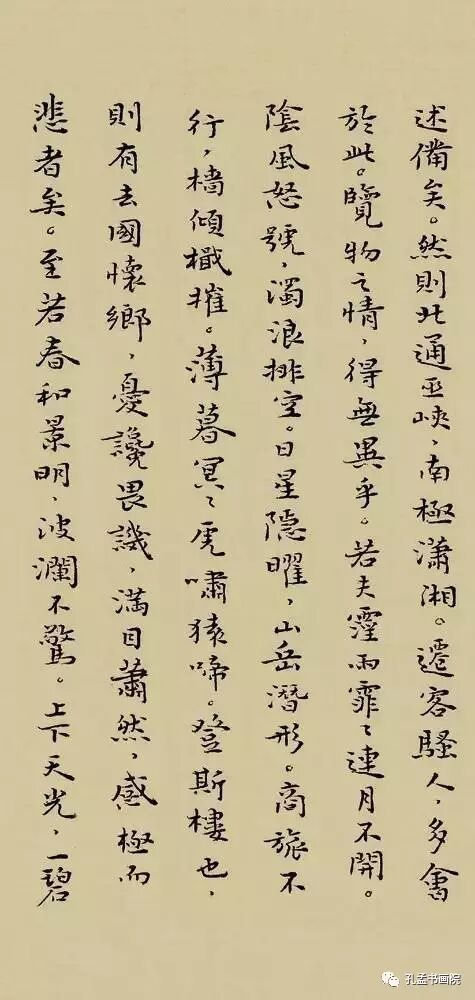 述備矣。然則北通巫峽，南極瀟湘。遷客騷人，多會
於此。覽物之情，得無異乎。若夫霪雨霏〻連月不開。
陰風怒號，濁浪排空。日星隱曜，山岳潛形。商旅不
行，檣傾檝摧。薄暮冥〻虎嘯猿啼。登斯樓也，
則有去國懷鄉，憂讒畏譏，滿目蕭然，感極而
悲者矣。至若春和景明，波瀾不驚。上下天光，一碧
孔孟书画院